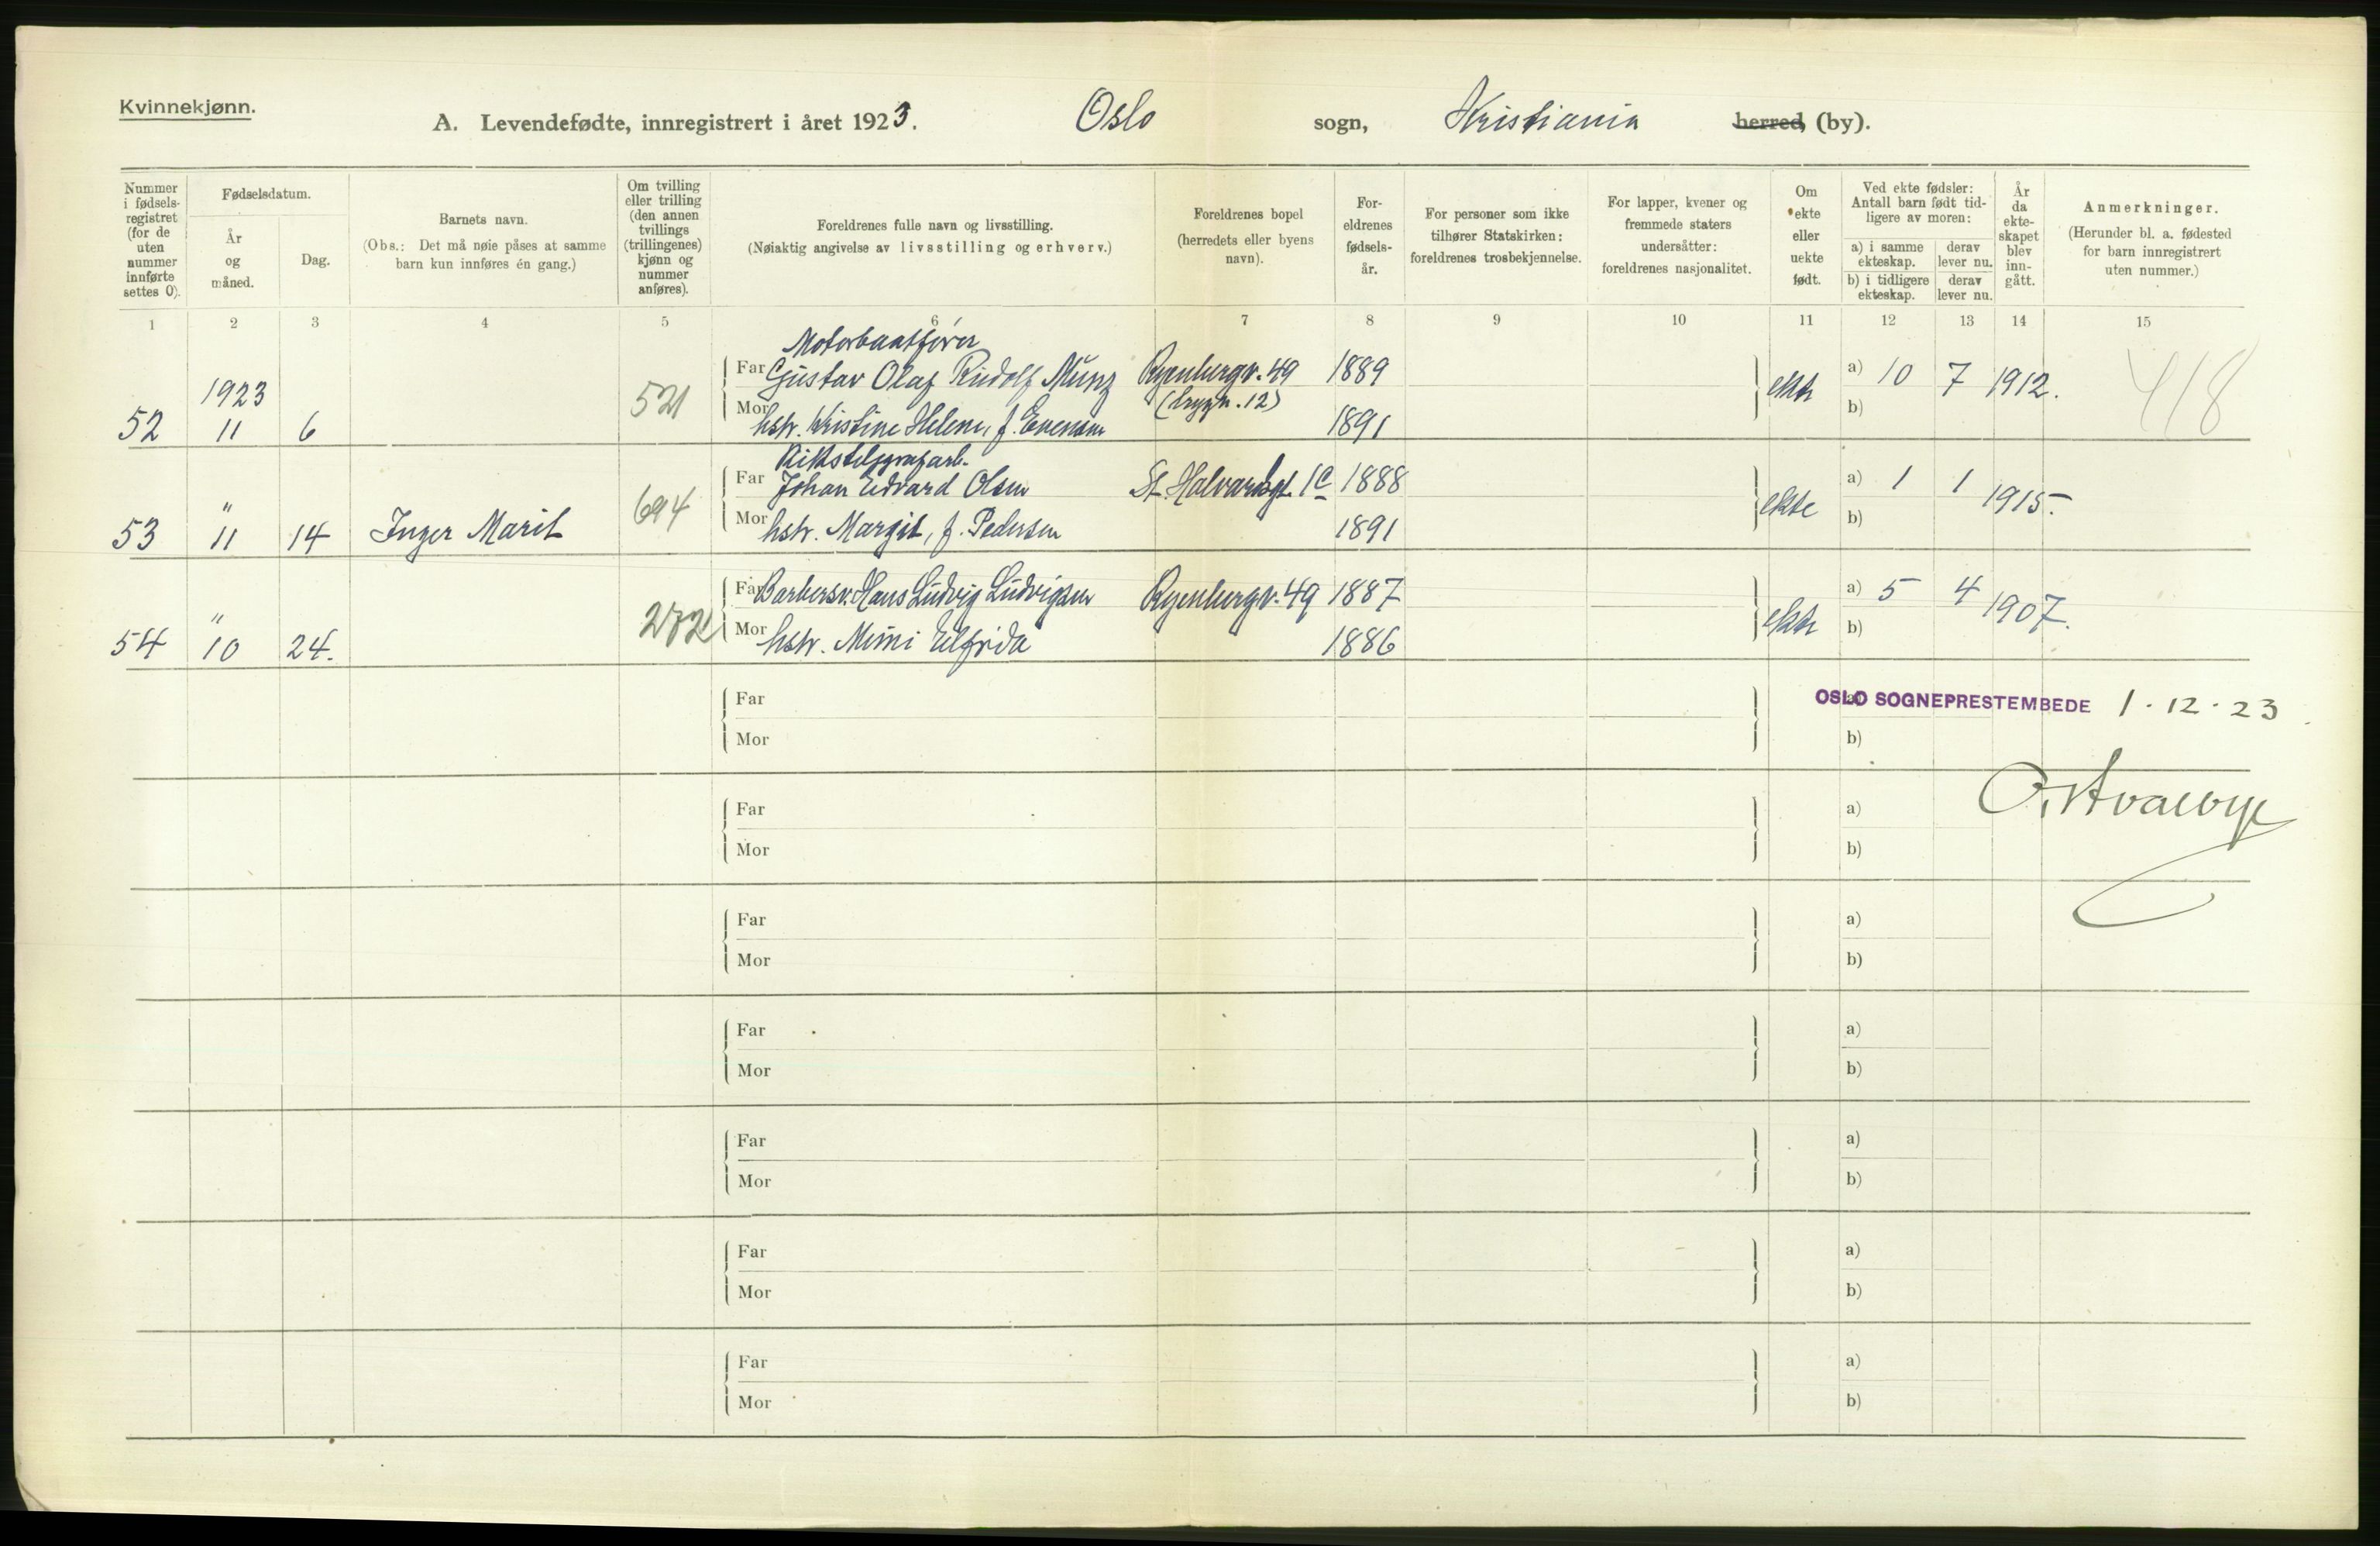 Kvinnekjønn.
A. Levendefødte, innregistrert i året 1923. Oslo sogn, Kristiania herred, (by).
Nummer i fødsels-registret (for de uten nummer innførte settes 0).
Fødselsdatum.
År og måned.
Dag.
Barnets navn.
(Obs.: Det må nøie påses at samme barn kun innføres én gang.)
Om tvilling eller trilling (den annen tvillings (trillingenes) kjønn og nummer anføres).
Foreldrenes fulle navn og livsstilling.
(Nøiaktig angivelse av livsstilling og erhverv.)
Foreldrenes bopel (herredets eller byens navn).
For-eldrenes fødsels-år.
For personer som ikke tilhører Statskirken: foreldrenes trosbekjennelse.
For lapper, kvener og fremmede staters undersåtter: foreldrenes nasjonalitet.
Om ekte eller uekte født.
Ved ekte fødsler: Antall barn født tid-ligere av moren:
a) i samme ekteskap.
derav lever nu.
b) i tidligere ekteskap.
derav lever nu.
År da ekte-skapet blev inn-gått.
Anmerkninger.
(Herunder bl. a. fødested for barn innregistrert uten nummer.)
1 2 3 4 5 6 7 8 9 10 11 12 13 14 15
Motorbaatfører
Far Gustav Olaf Rudolf Munz Ryenbergv. 49 1889 a) 10 7 1912.
52 1923 11 6 521 ekte 418
Mor hstr. Kristine Helene, f. Evensen 1891 b)
Rikstelegrafarb.
Far Johan Edvard Olsen St. Halvardsgt. 1c 1888 a) 1 1 1915.
53 " 11 14 Inger Marit 694 ekte
Mor hstr. Margit, f. Pedersen 1891 b)
Far Barbersv. Hans Ludvig Ludvigsen Ryenbergv. 49 1887 a) 5 4 1907.
54 " 10 24. 272 ekte
Mor hstr. Mimi Elfrida 1886 b)
Far OSLO SOGNEPRESTEMBEDE 1.12.23
Mor b)
Far a)
Mor b)
Far a)
Mor b)
Far a)
Mor b)
Far a)
Mor b)
Far a)
Mor b)
Far a)
Mor b)